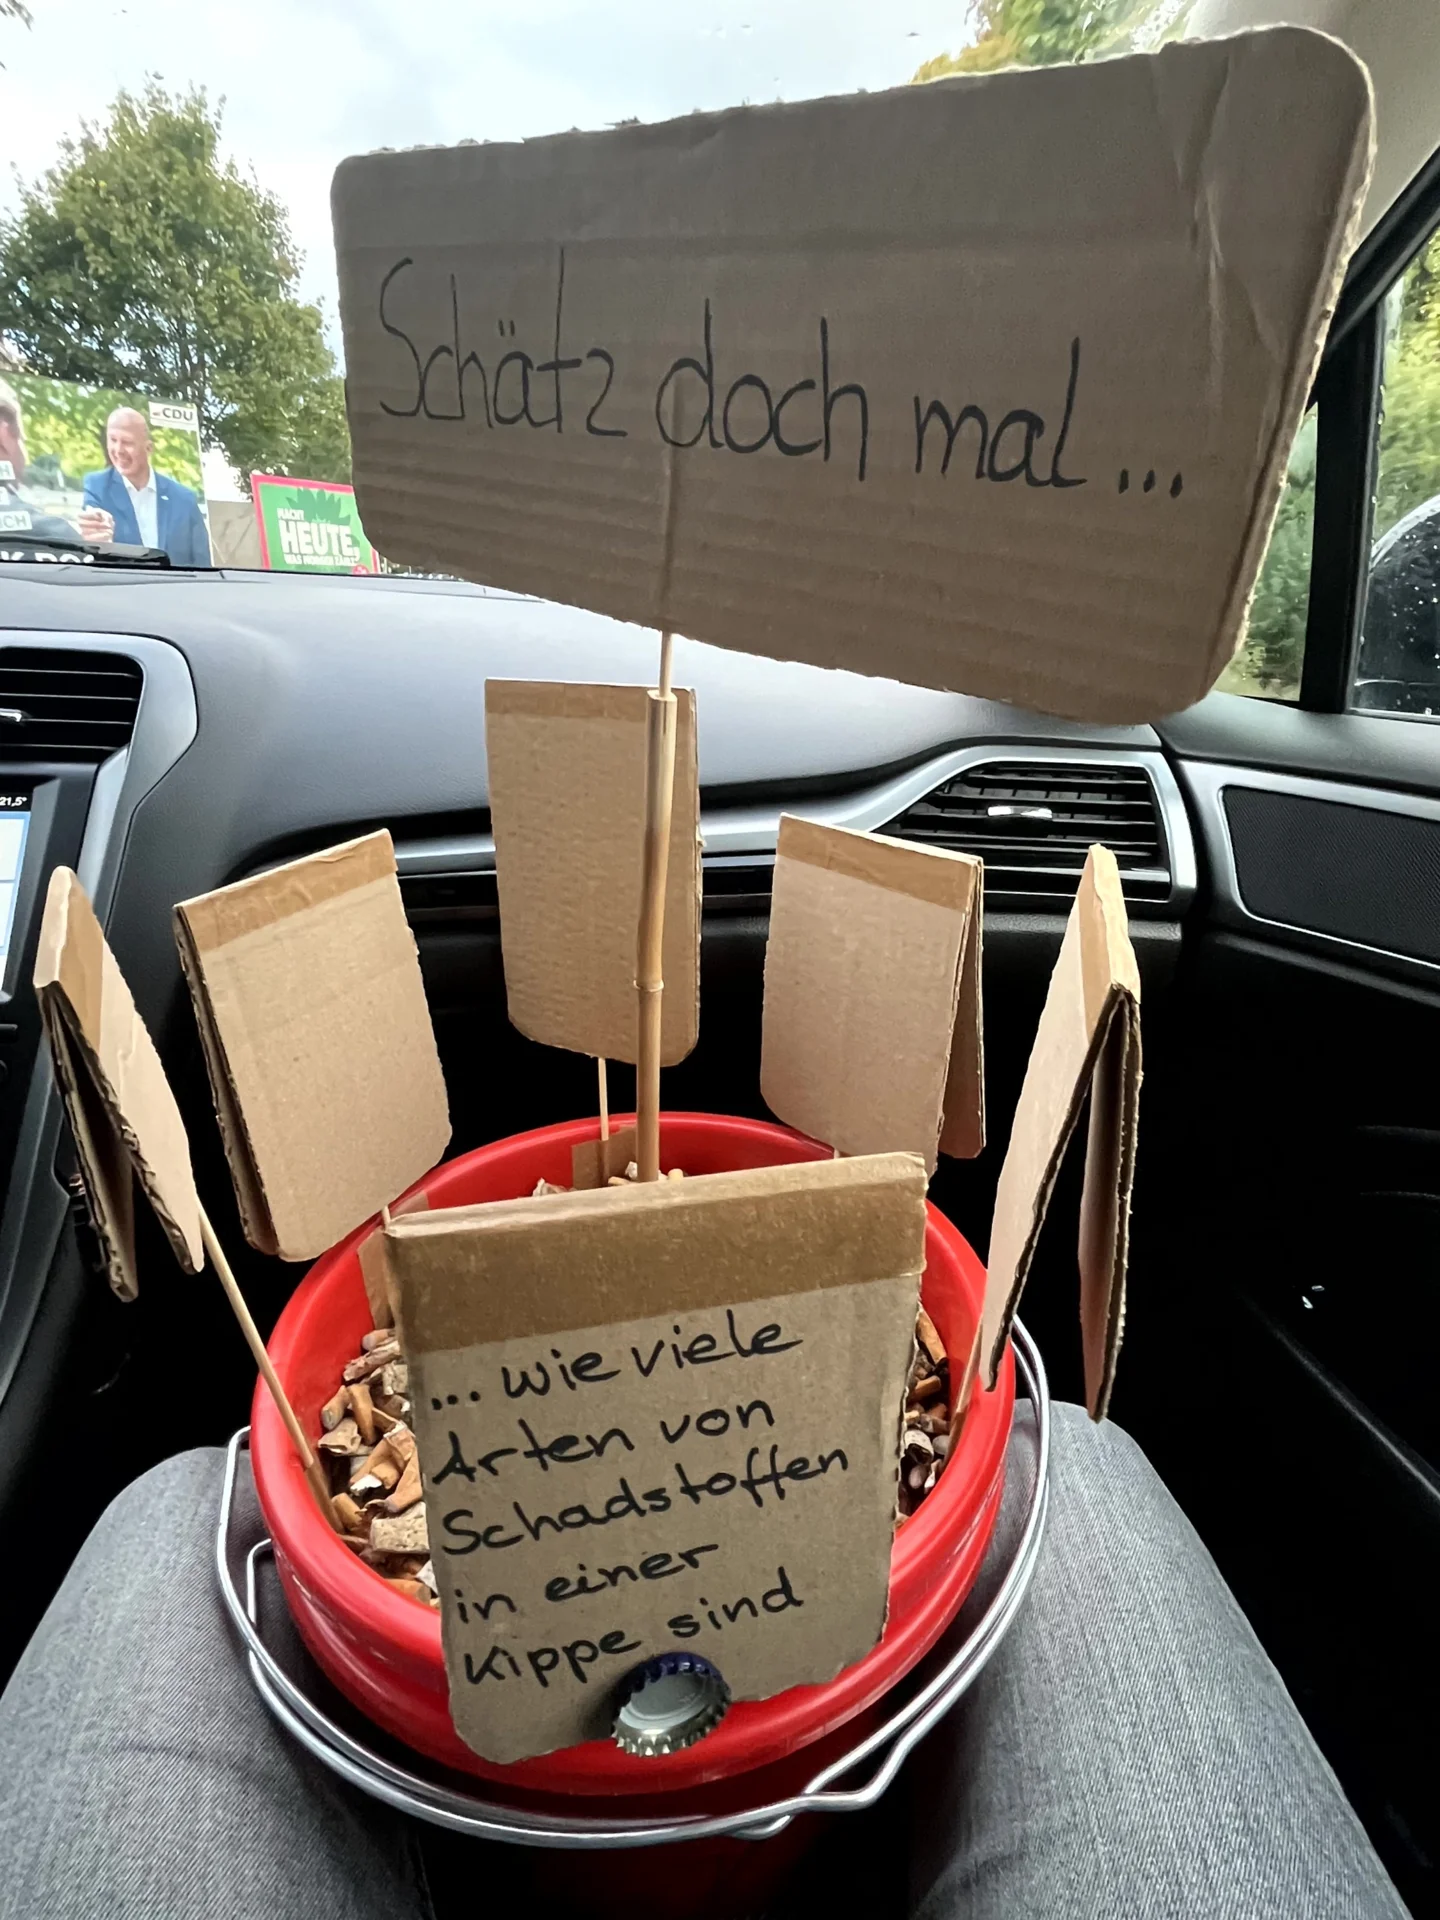 Schätz doch mal...
... wie viele
Arten von
Schadstoffen
in einer
Kippe sind
CDU
MACHT
HEUTE,
WAS MORGEN ZÄHLT.
21,5°